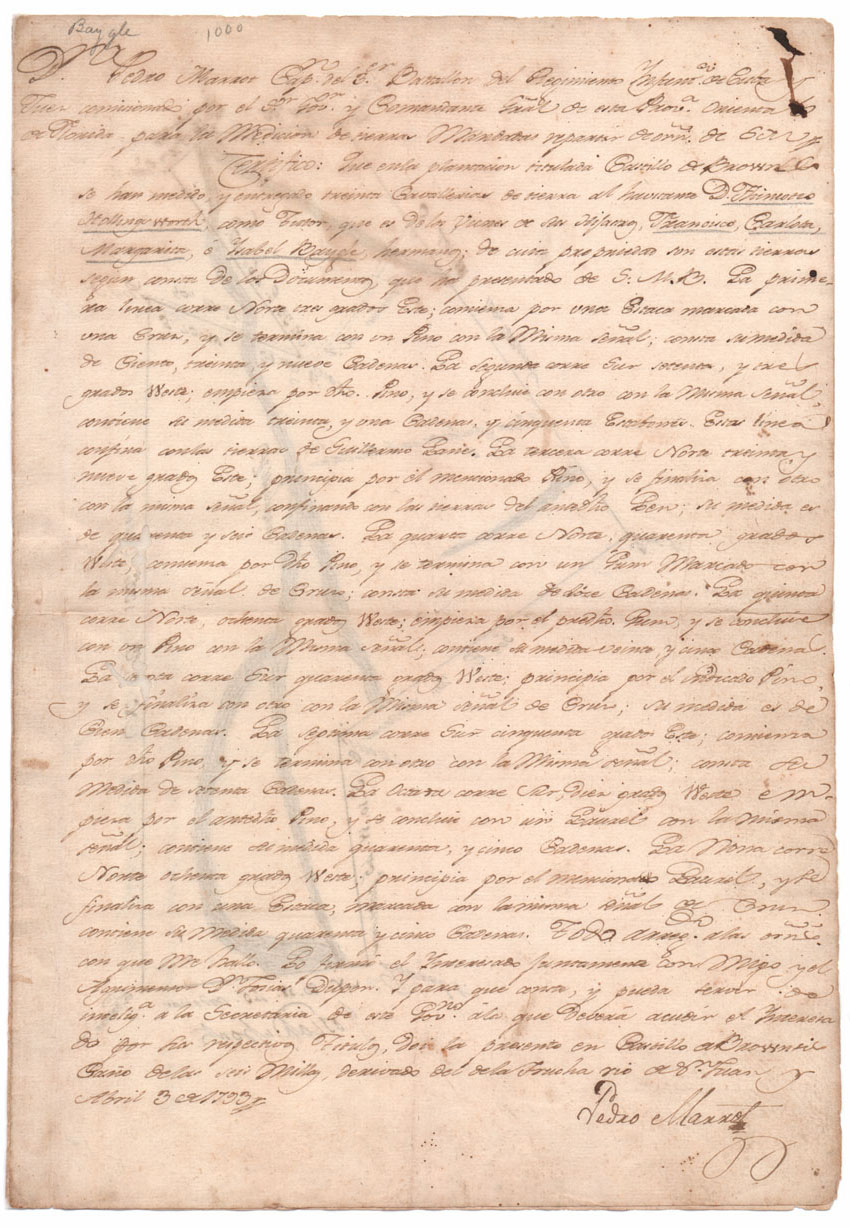 Baygle 1000
Dn. Pedro Marrot Capn. del 3r. Batallon del Regimiento Infanta. de Cuba
Juez comisionado por el Sr. Govr. y Comandante Gral. de esta Prova. Oriental
de Florida para la Medicion de tierras Mandadas repartir de orn. de S. M.
Certifico: Que en la plantacion titulada Castillo de Brown
se han medido, y entregado treinta Cavallerias de tierra al havitante D. Timoteo
Hollingworth, como Tutor, que es de la de sus Hijastros, Francisco, Carlota,
Margarita, è Ysabel Baygle, hermanos; de cuia propiedad son estas tierras
segun consta de los Documentos, que ha presentado de S. M. B. La prime-
ra linea corre Norte tres grados Este; comienza por una Estaca marcada con
una Cruz, y se termina con un Pino con la Misma señal; consta su medida
de Ciento, treinta, y nueve Cadenas. La segunda corre Sur setenta, y tres
grados Weste; empieza por dho. Pino, y se concluie con otro con la Misma señal,
contiene su medida treinta, y una Cadena, y cinquenta Eslabones. Esta linea
confina con las tierras de Guillermo Lane. La tercera corre Norte treinta y
nueve grados Este; principia por el mencionado Pino, y se finaliza con otro
con la misma señal, confinando con las tierras del anadho Len; su medida es
de quarenta y seis Cadenas. La quarta corre Norte, quarenta grados
Weste, comienza por dho Pino, y se termina con un Gum Marcado con
la misma señal de Cruz; consta su medida de dóce Cadenas. La quinta
corre Norte, ochenta grados Weste; empieza por el predho. Gum, y se concluie
con un Pino con la Misma señal; contiene su medida veinte y cinco Cadenas.
La sexta corre Sur quarenta grados Weste; principia por el indicado Pino,
y se finaliza con otro con la Misma señal de Cruz; su medida es de
Cien Cadenas. La septima corre Sur cinquenta grados Este; comienza
por dho Pino, y se termina con otro con la Misma señal; consta su
Medida de setenta Cadenas. La Octava corre Sur, diez grados Weste em-
pieza por el antedho Pino, y se concluie con un Laurel con la misma
señal; contiene su medida quarenta, y cinco Cadenas. La Nona corre
Norte ochenta grados Weste; principia por el mencionado Laurel, y se
finaliza con una Estaca, marcada con la misma señal de Cruz
contiene su Medida quarenta y cinco Cadenas. Todo arreg.do a las orns.
con que Me hallo. Lo firmó el Interesado juntamente con Migo, y el
Agrimensor Dn. Josias Dupon. Y para que conste, y pueda servir de
intelig.a a la Secretaria de este Govno. à la que Deverà acudir el Interesa
do por los respectivos Titulos, doi la presente en Castillo de Brown
Caño de las seis Millas, derivado del de la Trucha rio de Sn. Juan y
Abril 3 de 1793
Pedro Marrot